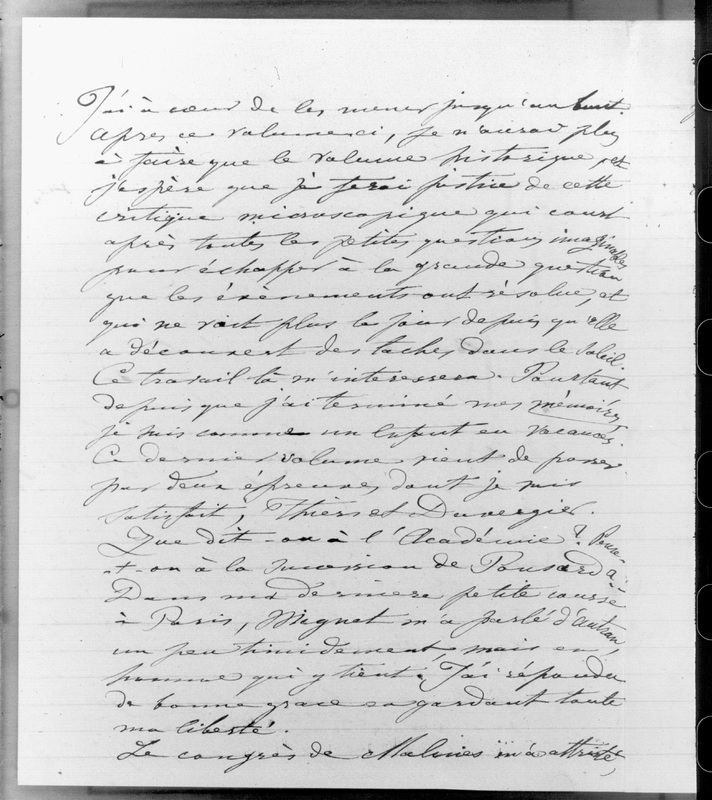 J'ai à cœur de les mener jusqu'au bout.
Après ce volume-ci, je n'aurai plus
à faire que le volume historique, et
j'espère que je ferai justice de cette
critique microscopique qui court
après toutes les petites questions imaginables
pour échapper à la grande question
que les évènements ont résolue, et
qui ne voit plus le jour depuis qu'elle
a découvert des taches dans le soleil.
Ce travail là m'interessera. Pourtant
depuis que j'ai terminé mes mémoires
je suis comme un enfant en vacances.
Ce dernier volume vient de passer
par deux épreuves dont je suis
satisfait, Thiers et Duvergier.
Que dit-on à l'Académie? Pense-
-t-on à la succession de Ponsard?
Dans ma dernière petite course
à Paris, Mignet m'a parlé d'Autran
un peu timidement, mais en
homme qui y tient. J'ai répondu
de bonne grace en gardant toute
ma liberté.
Le congrès de Malines m'a attristé,